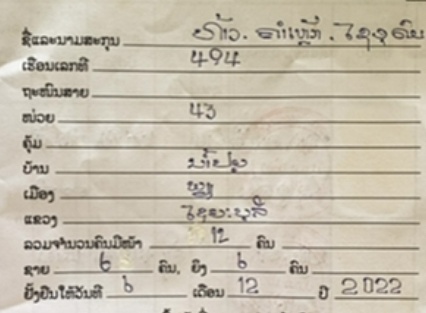 ຊື່ແລະນາມສະກຸນ ທ້າວ. ຄຳເຫຼົາ.
ເຮືອນເລກທີ 494
ຖະໜົນສາຍ
ໜ່ວຍ 43
ຄຸ້ມ
ບ້ານ ນ້ຳປຸຍ
ເມືອງ
ແຂວງ ໄຊຍະບູລີ
ລວມຈຳນວນຄົນມີໜ້າ 12 ຄົນ
ຊາຍ 6 ຄົນ, ຍິງ 6 ຄົນ
ຢັ້ງຢືນໃຫ້ວັນທີ 6 ເດືອນ 12 ປີ 2022